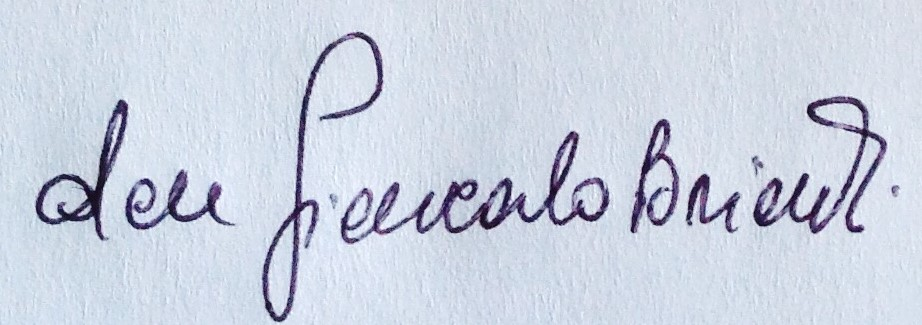 don Giancarlo Brianti